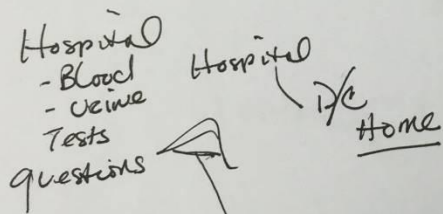 Hospital
- Blood
- Urine
Tests
Questions
Hospital
D/C
Home